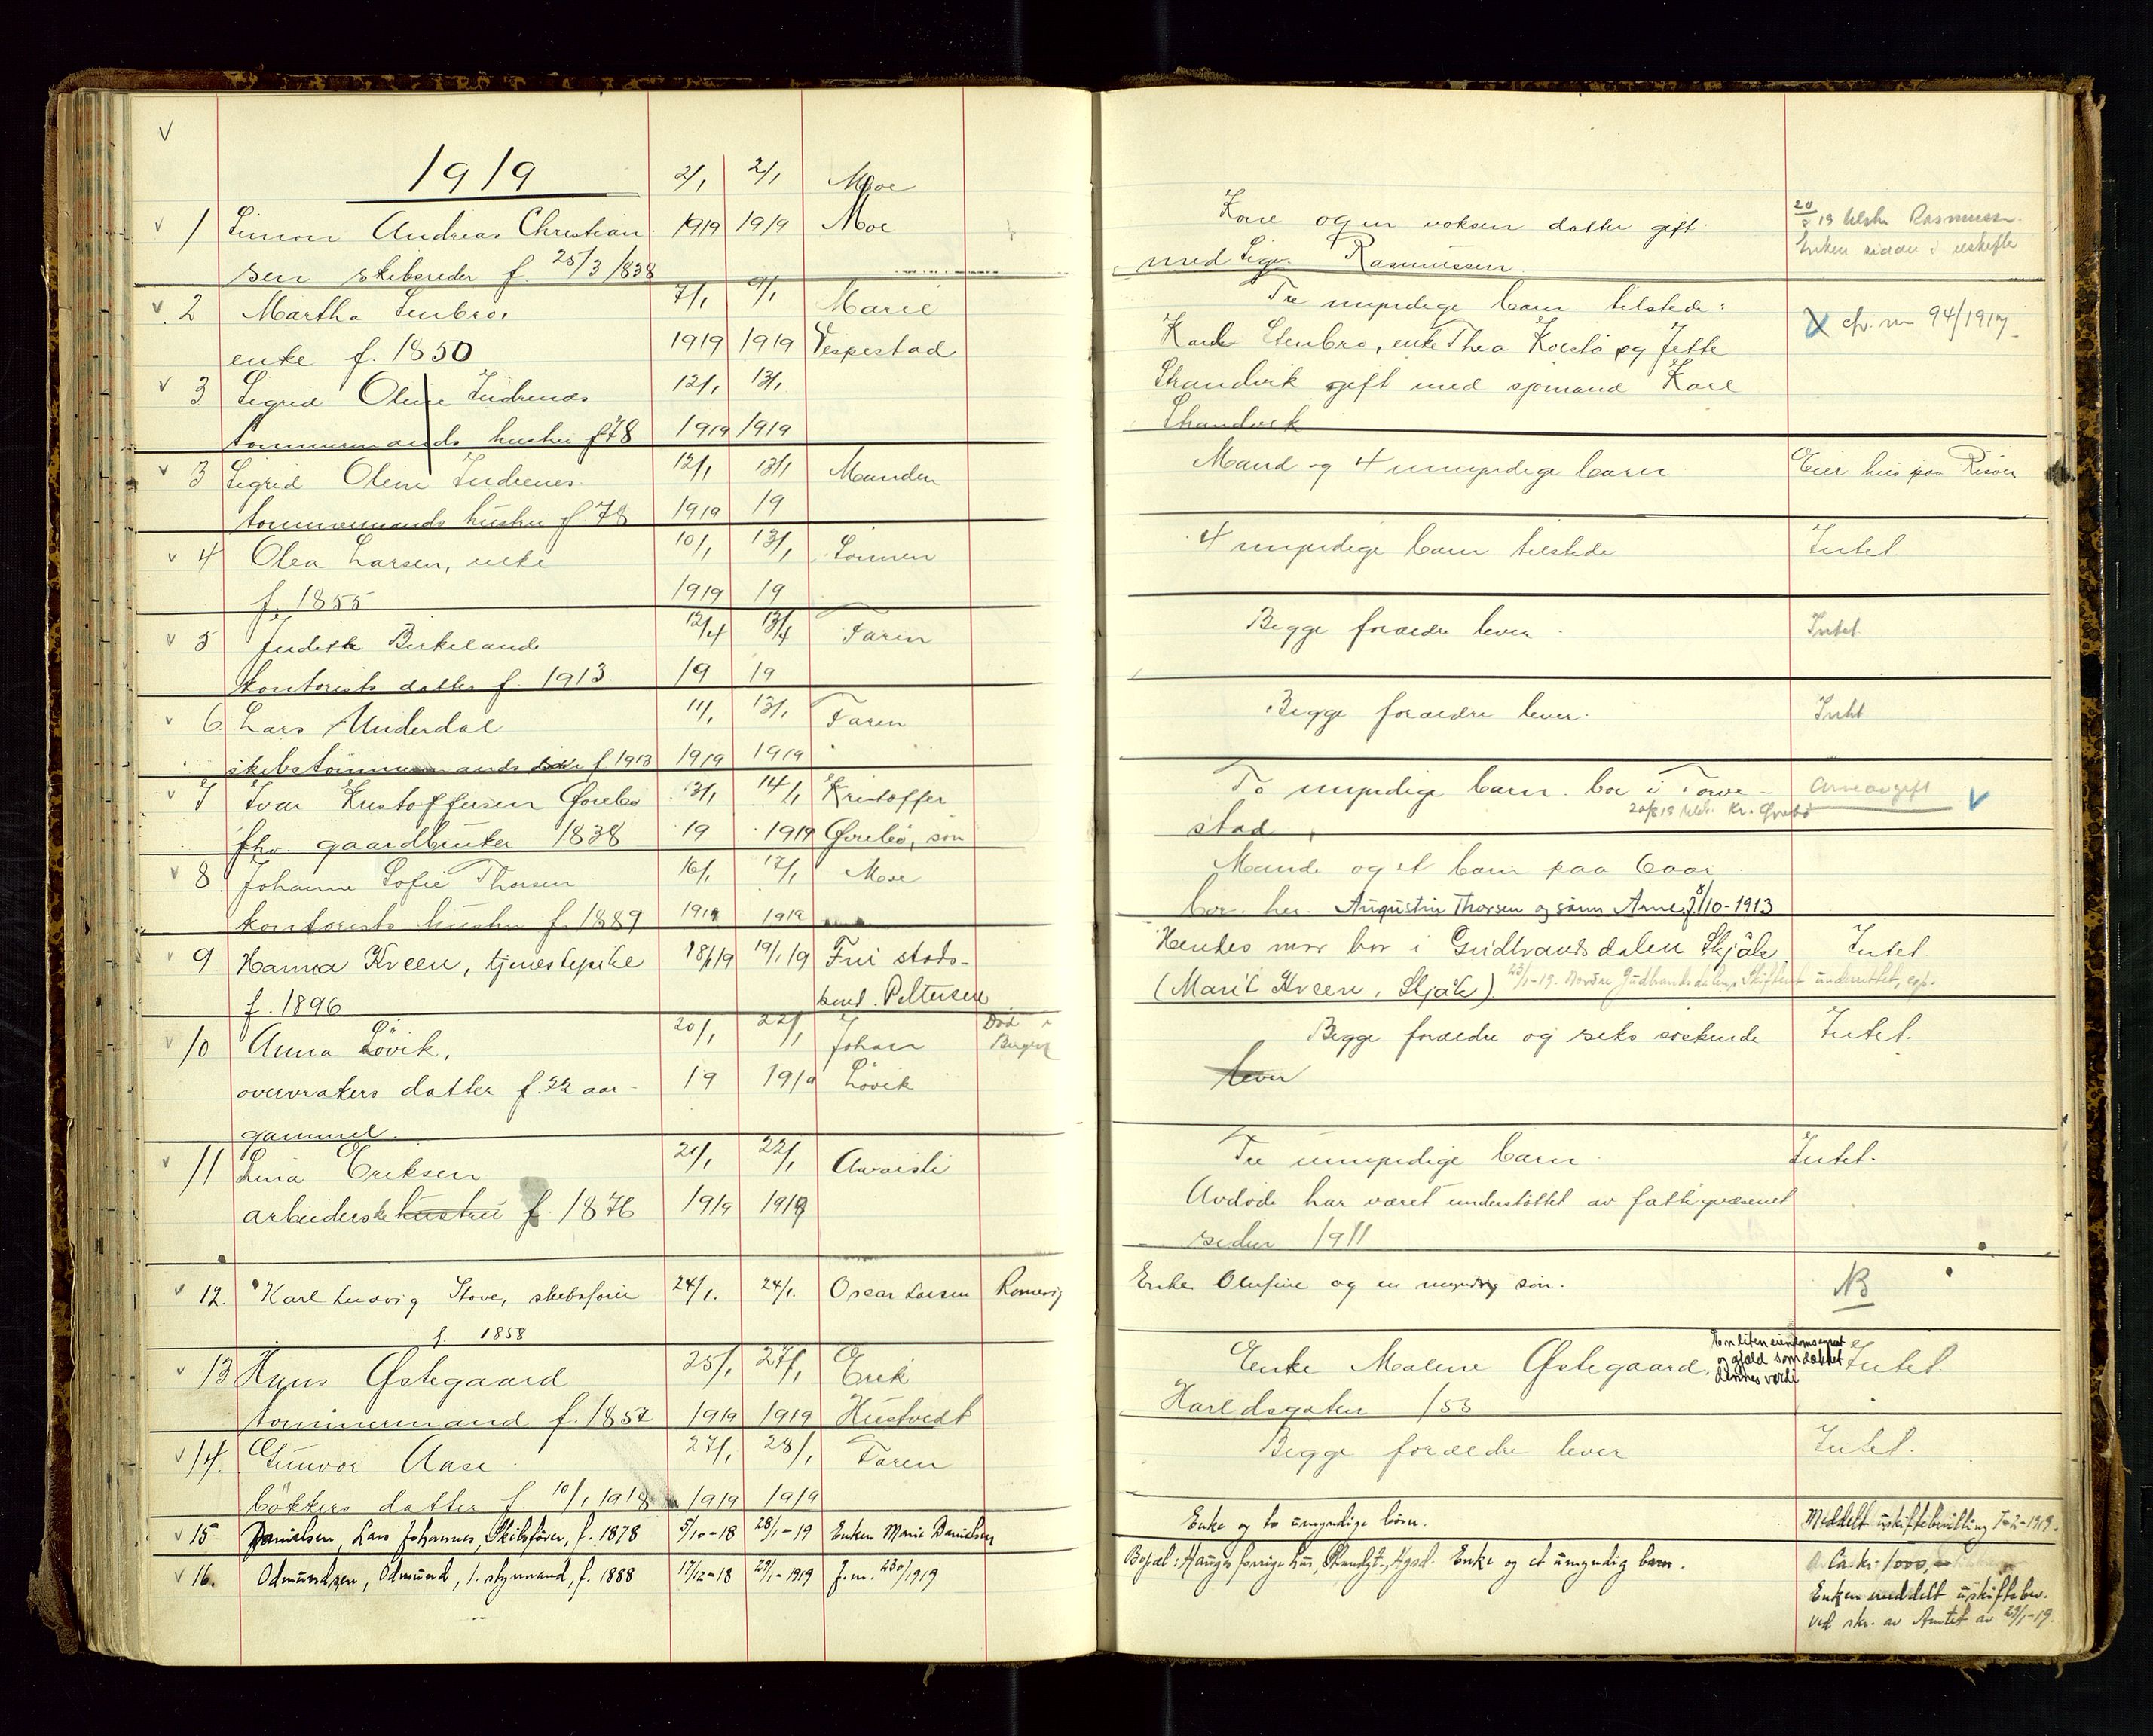 1919
2/1 2/1 Moe
1 Simon Andreas Christian 1919 1919 Moe
sen skibsreder f. 25/3 1838
2 Martha Stenbro, 7/1 9/1 Marie
enke f. 1850 1919 1919 Vespestad
3 Sigrid Oline Indrenes 12/1 13/1
tømmermands hustru f 78 1919 1919
3 Sigrid Oline Indrenes 12/1 13/1 Manden
tømmermands hustru f. 78 1919 19
4 Olea Larsen, enke 10/1 13/1 Sønnen
f. 1855 1919 19
5 Judith Birkeland 12/4 13/4 Faren
kontorists datter f. 1913. 19 19
6. Lars Underdal 11/1 13/1 Faren
skibstømmermands f 1913 1919 1919
7 Ivar Kristoffersen Ørebø 13/1 14/1 Kristoffer
fhv. gaardbruker 1838 19 1919 Ørebø, søn
8. Johanne Sofie Thorsen 16/1 17/1 Moe
kontorists hustru f. 1889 1919 1919
9 Hanna Kveen, tjenestepike 18/1 19 19/1 19 Fru stads-
f. 1896 kend. Pettersen
10 Anna Løvik, 20/1 22/1 Johan Død i Bergen
overvrakers datter f. 22 aar- 19 1919 Løvik
gammel.
11 Lina Eriksen 21/1 22/1
arbeiderske hustru f. 1876 1919 1919
12. Karl Ludvig Stove, skibsfører 24/1. 24/1. Oscar Larsen
f. 1858
13 Hans Østegaard 25/1 27/1 Erik
tømmermand f. 1857 1919 1919 Hustvedt
14. Gunvor Aase 27/1 28/1 Faren
bøkkers datter f. 10/1 1918 1919 1919
15 Danielsen, Lars Johannes, Skibsfører, f. 1878 5/10-18 28/1-19 Enken Marie Danielsen
16. Odmundsen, Odmund, 1. styrmand, f. 1888 17/12-18 29/1-1919 J.nr. 230/1919
Kone og en voksen datter gift
med Sigv. Rasmussen
20/8 19 tilst. Rasmussen.
Enken sidder i uskifte
Tre myndige barn tilstede:
Karl Stenbro, enke Thea Kolstø og Jette
Strandvik gift med sjømand Karl
Strandvik
cfr. nr 94/1917.
Mand og 4 umyndige barn Eier hus paa Risøen
4 myndige barn tilstede Intet
Begge forældre lever. Intet
Begge forældre lever. Intet
To myndige barn. bor i Torve- Arveavgift
stad 20/8 19 tilst. Kr. Ørebø
Mand og et barn paa 6 aar
bor her. Augustin Thorsen og sønn Arne, f. 8/10-1913
Hendes mor bor i Gudbrandsdalen Skjåk Intet
(Marit Kveen, Skjåk) 23/1-19. Nordre Gudbrandsdalens Skifteret underrettet, exp.
Begge forældre og seks søskende Intet.
lever
Tre umyndige barn Intet.
Avdøde har været understøttet av fattigvæsenet
siden 1911
Enke Olufine og en myndig søn. NB
Enke Malene Østegaard, Intet
Haraldsgaten 153
En liten eiendomsepart
og gjæld som dækket
dennes værdi
Begge forældre lever Intet.
Enke og to umyndige børn. Meddelt uskiftebevilling 7-2-1919.
Bopæl: Hauges forrige hus, Strandgt., Hgsd. Enke og et umyndig barn. Ca. kr. 1000,-
Enken meddelt uskiftebev.
ved skr. av Amtet av 29/1-19.